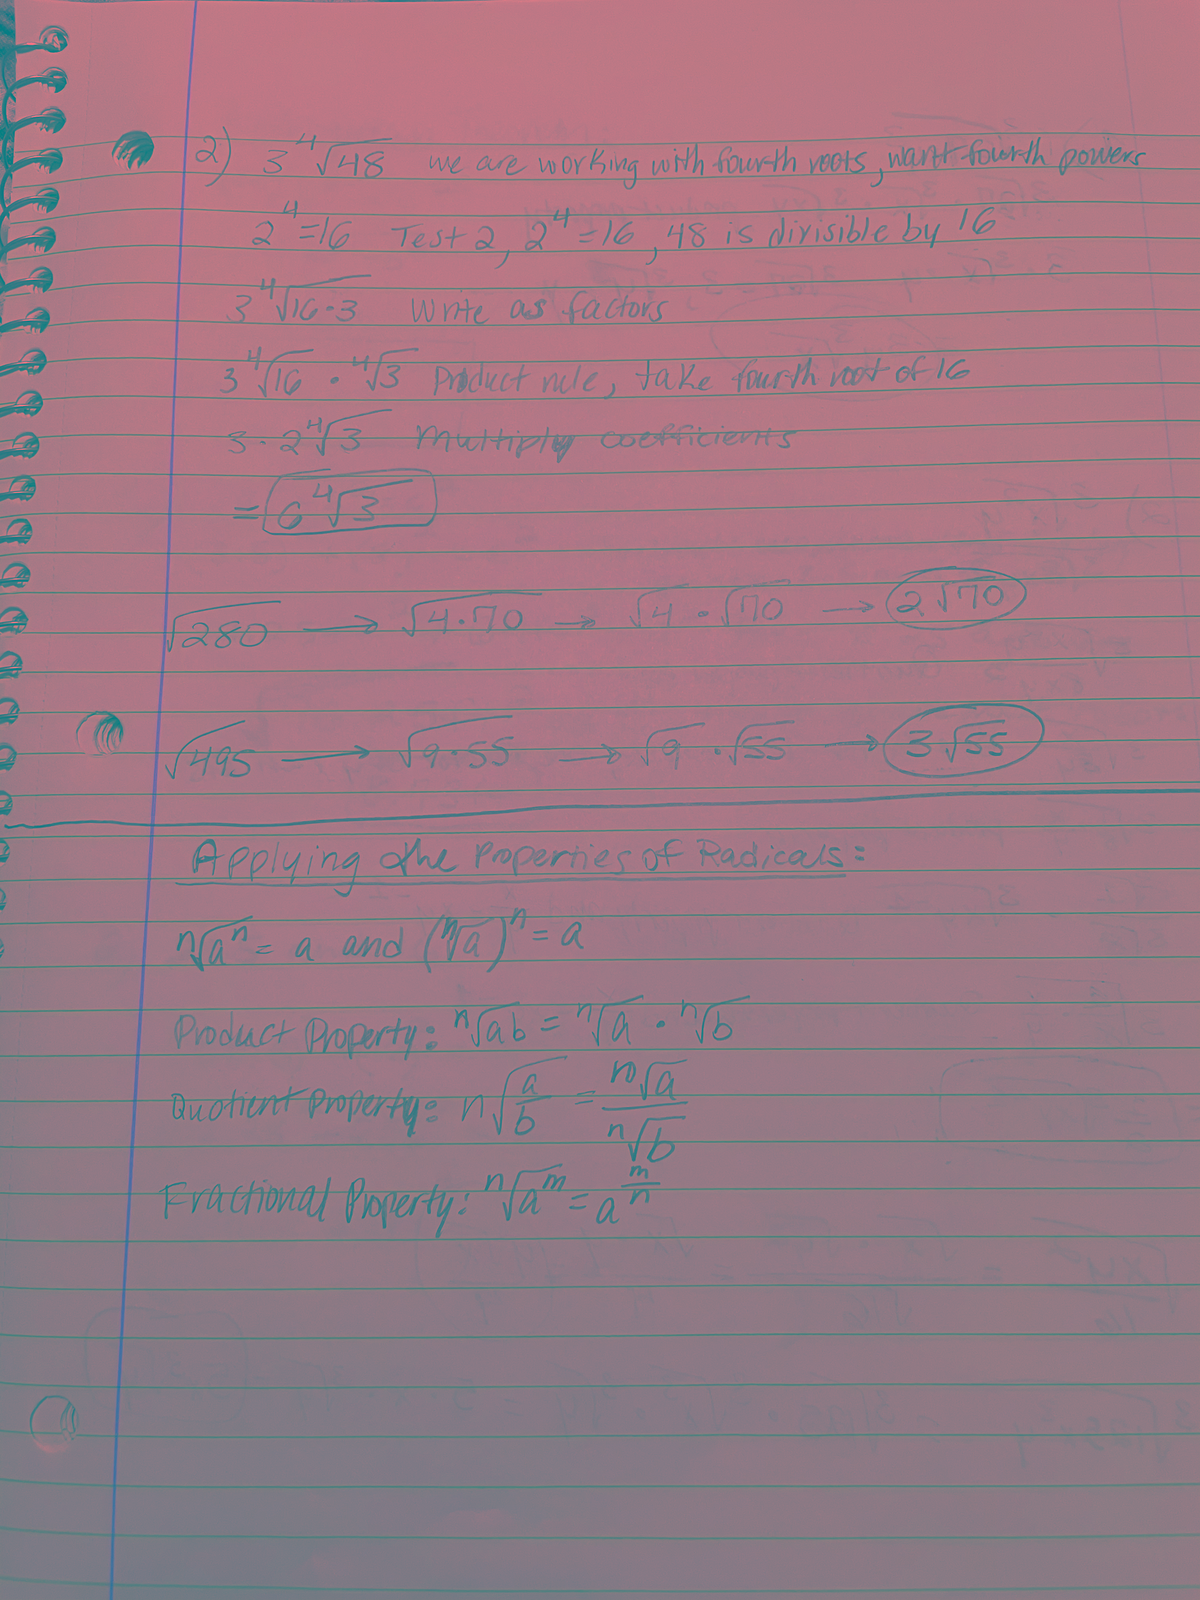 2) 3 ∜48 we are working with fourth roots, want fourth powers
2⁴=16 Test 2, 2⁴=16, 48 is divisible by 16
3 ∜16·3 Write as factors
3 ∜16 · ∜3 Product rule, take fourth root of 16
3·2 ∜3 Multiply coefficients
= 6 ∜3
√280 → √4·70 → √4 · √70 → 2√70
√495 → √9·55 → √9 · √55 → 3√55
Applying the Properties of Radicals:
ⁿ√aⁿ = a and (ⁿ√a)ⁿ = a
Product Property: ⁿ√ab = ⁿ√a · ⁿ√b
Quotient Property: n√(a/b) = ⁿ√a / ⁿ√b
Fractional Property: ⁿ√a^m = a^(m/n)